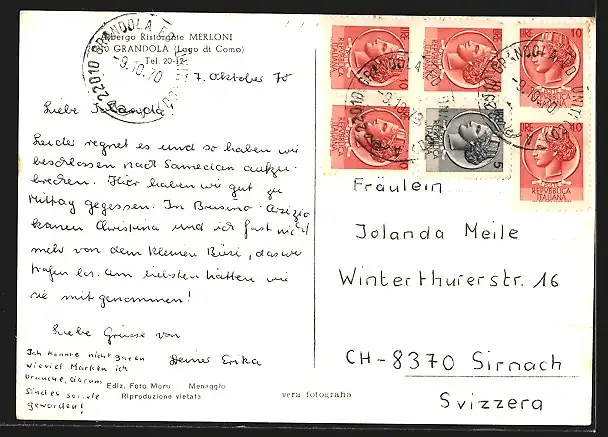 Albergo Ristorante MERLONI
22010 GRANDOLA (Lago di Como)
Tel. 20-12
7. Oktober 70
Liebe Jolanda!
Leider regnet es und so haben wir
beschlossen nach Samedan aufzu-
brechen. Hier haben wir gut zu
Mittag gegessen. In Brusino-Arsizio
kamen Christina und ich fast nicht
mehr von dem kleinen Büsi, das wir
trafen los. Am liebsten hätten wir
sie mitgenommen!
Liebe Grüsse von
Deiner Erika
Ich konnte nicht sagen
wieviel Marken ich
brauche, darum
sind es so viele
geworden!
Ediz. Foto Moro Menaggio
Riproduzione vietata
vera fotografia
LIRE 10
POSTE
REPVBBLICA
ITALIANA
5
22010 GRANDOLA ED UNITI (CO)
-9.10.70
Fräulein
Jolanda Meile
Winterthurerstr. 16
CH-8370 Sirnach
Svizzera